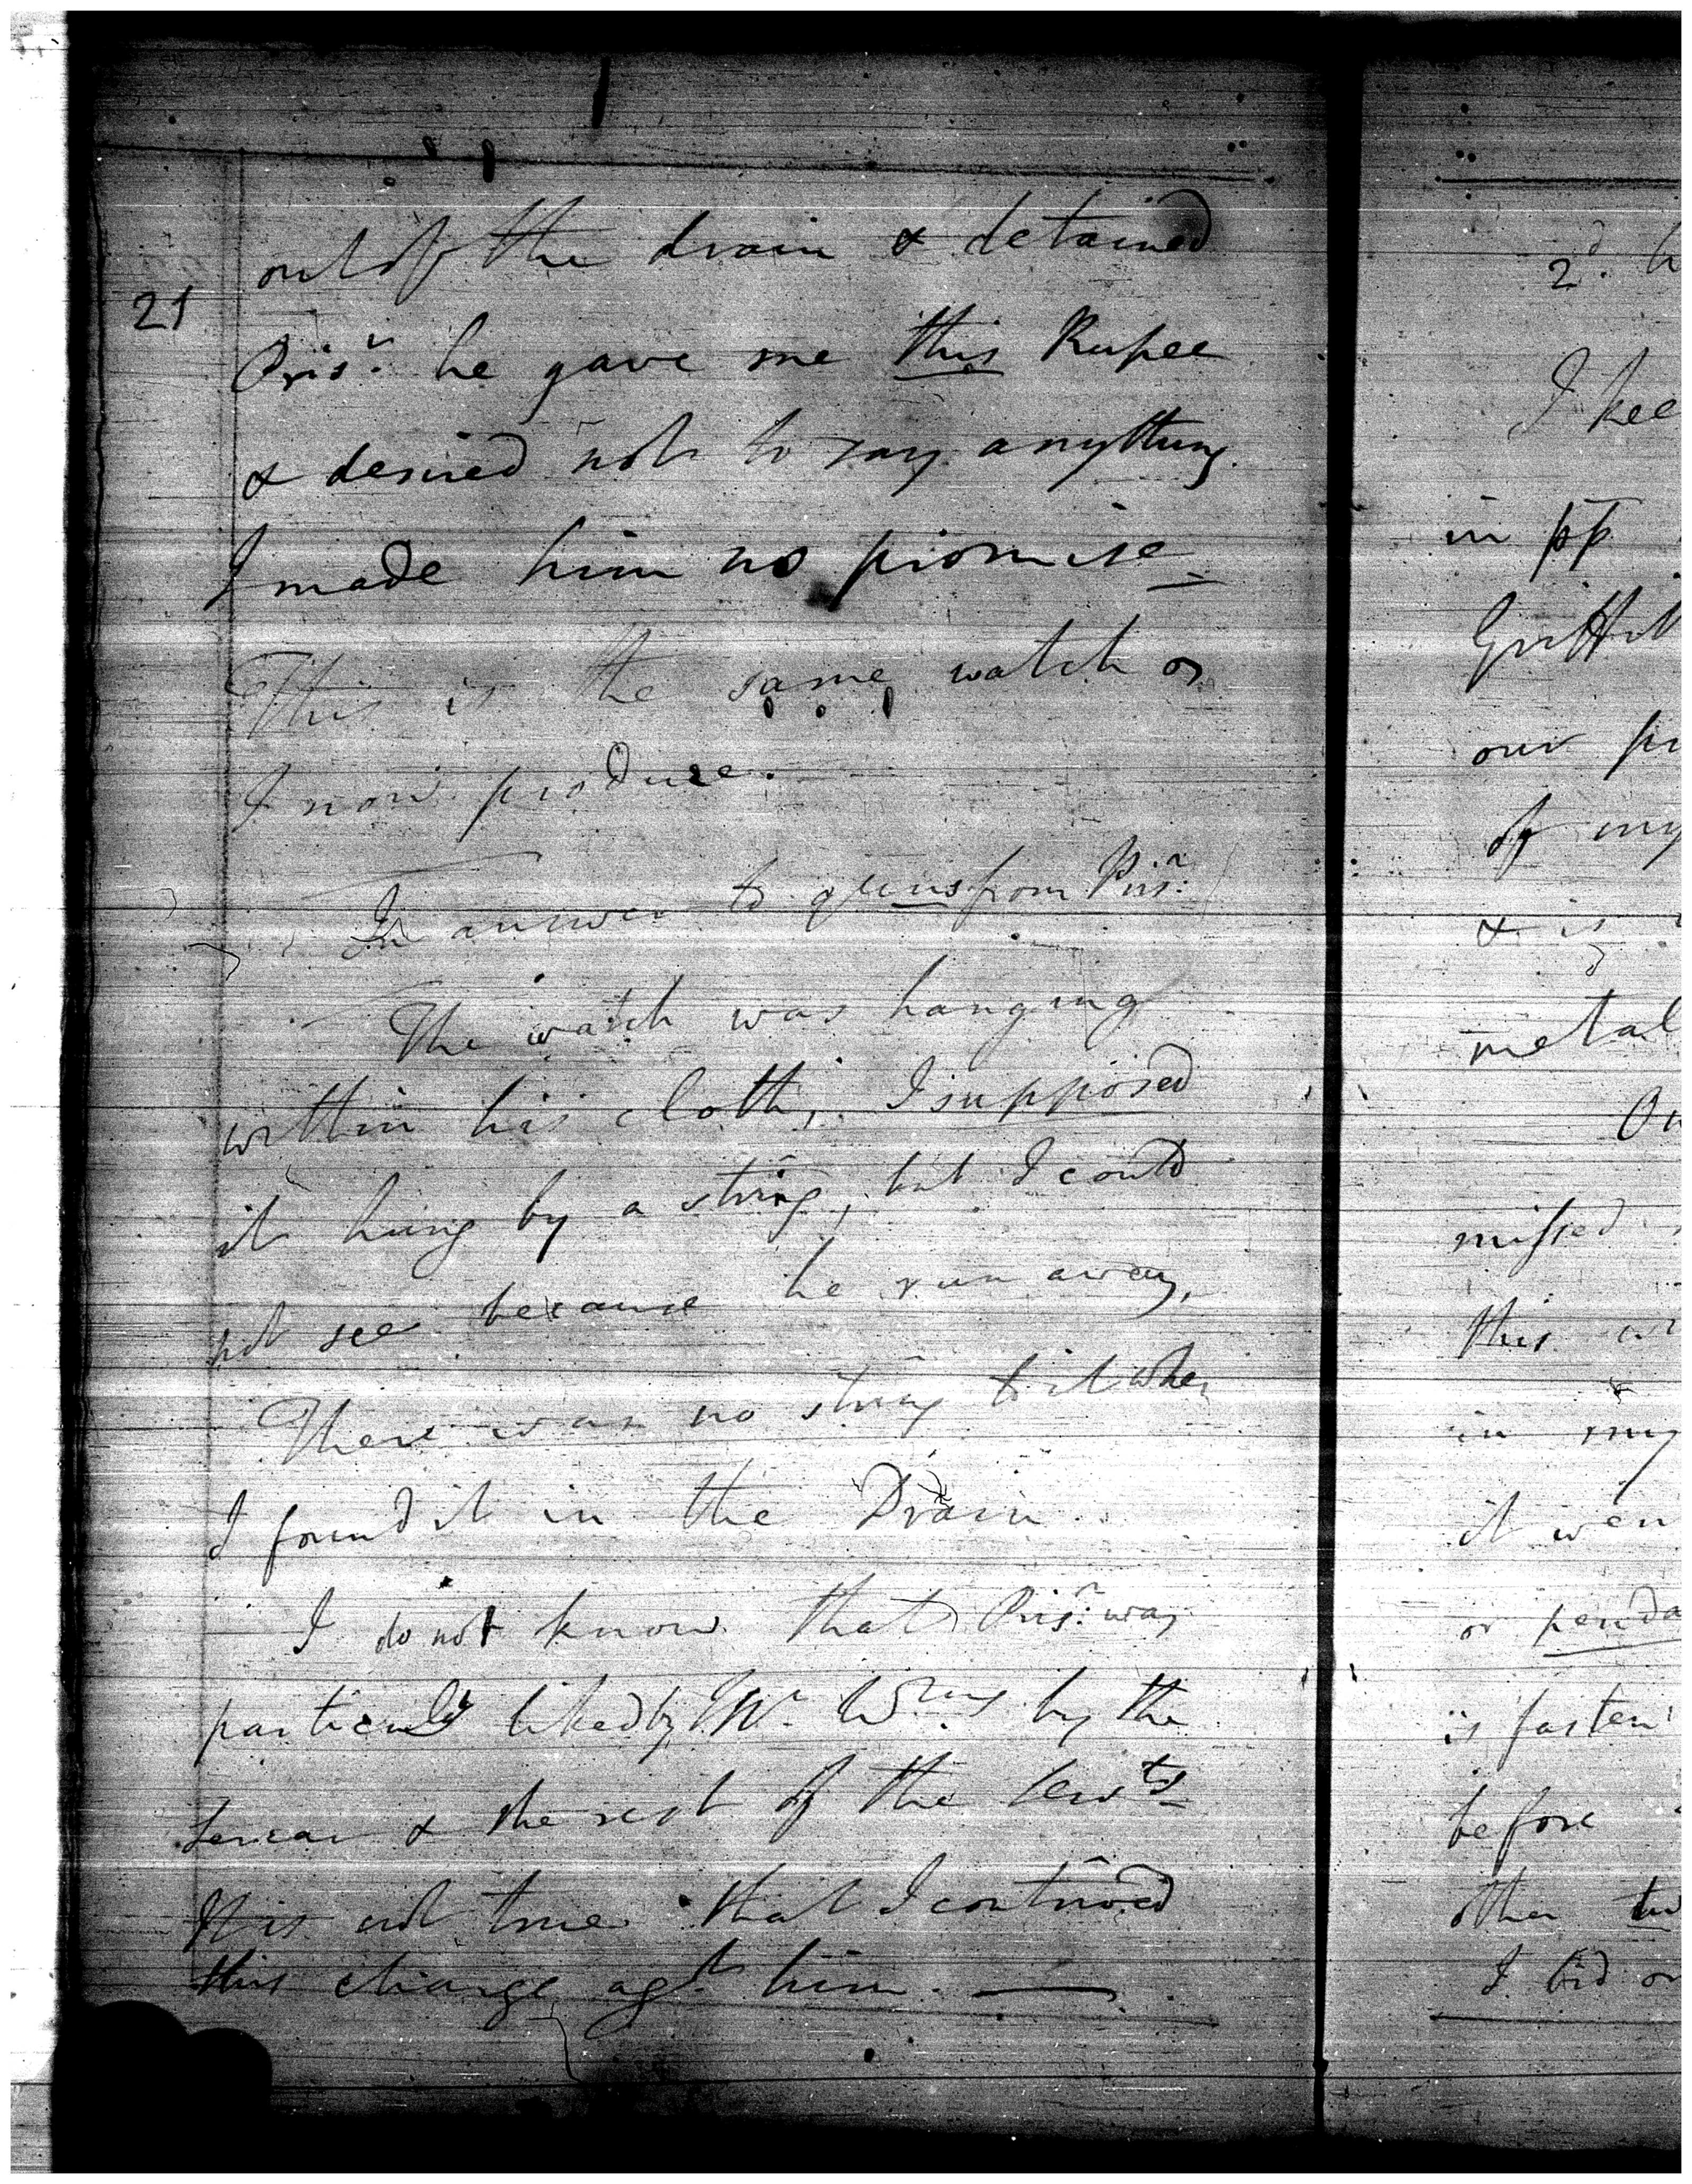 out of the drain & detained
21
Prisr. he gave me this Rupee
& desired not to say anything.
I made him no promise
This is the same watch as
I now produce.
In answer to from Prisr.
The watch was hanging
within his cloth, I supposed
it hung by a string, but I could
not see because he run away,
There was no string to it when
I found it in the Drain.
I do not know that Prisr. was
liked by Mr. by the
& the rest of the
It is not true that I contrived
this charge agt. him.
2d.
I kee
in pp
our pr
of my
& is
metal
missed
this
in my
it wen
or penda
is fasten
before
other